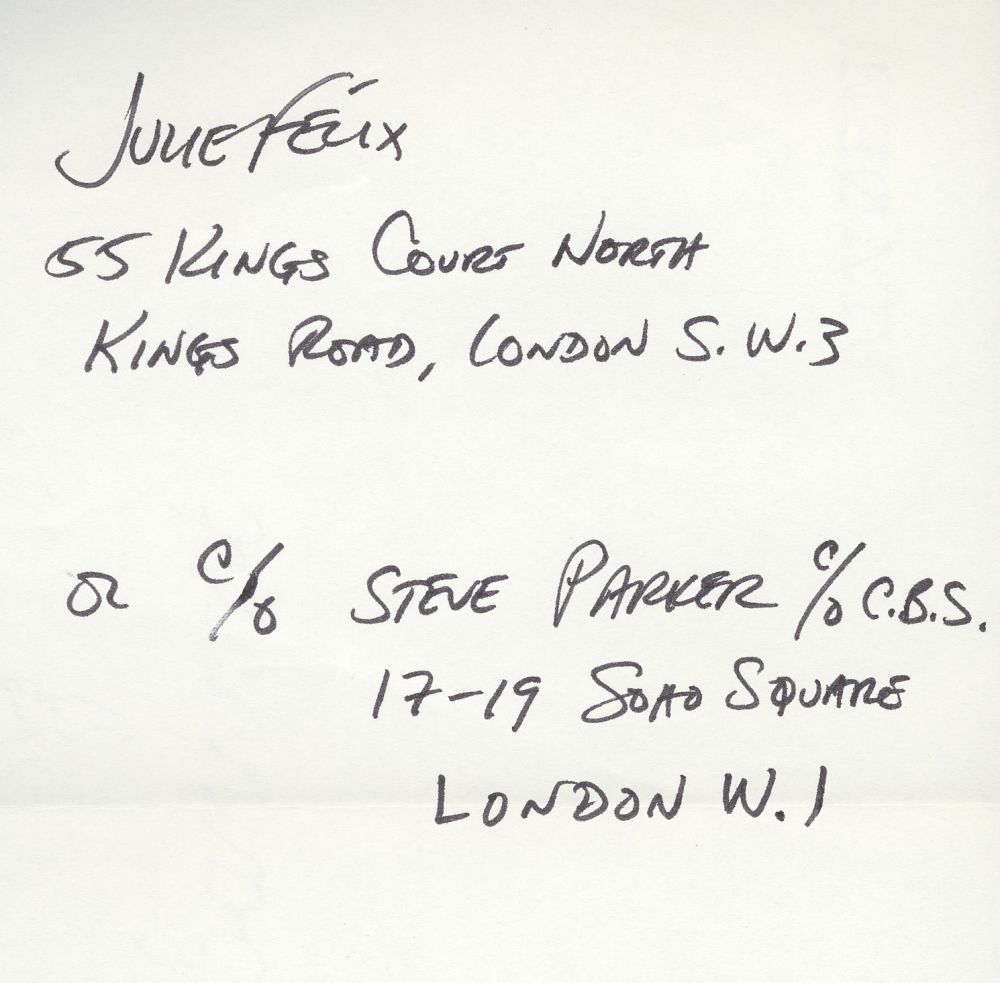 JULIE FELIX
55 KINGS COURT NORTH
KINGS ROAD, LONDON S.W.3
OR C/O STEVE PARKER C/O C.B.S.
17-19 SOHO SQUARE
LONDON W.1